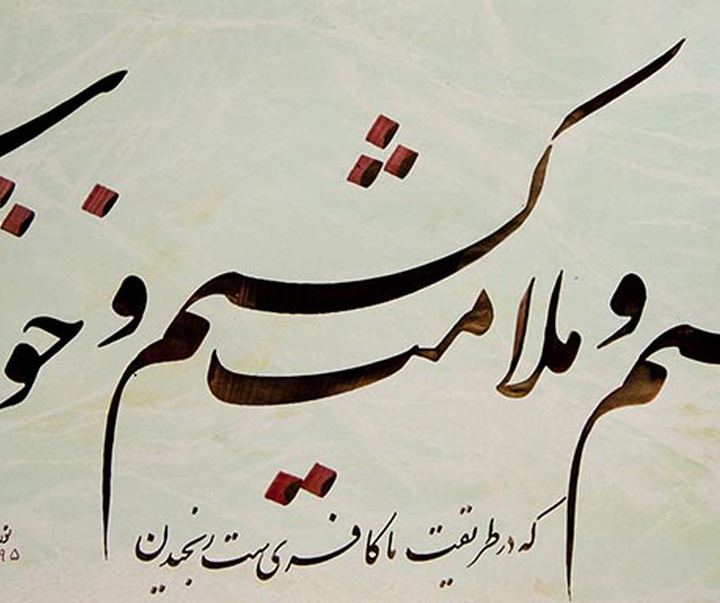 و ملامت کشیم و
که در طریقت ما کافریست رنجیدن